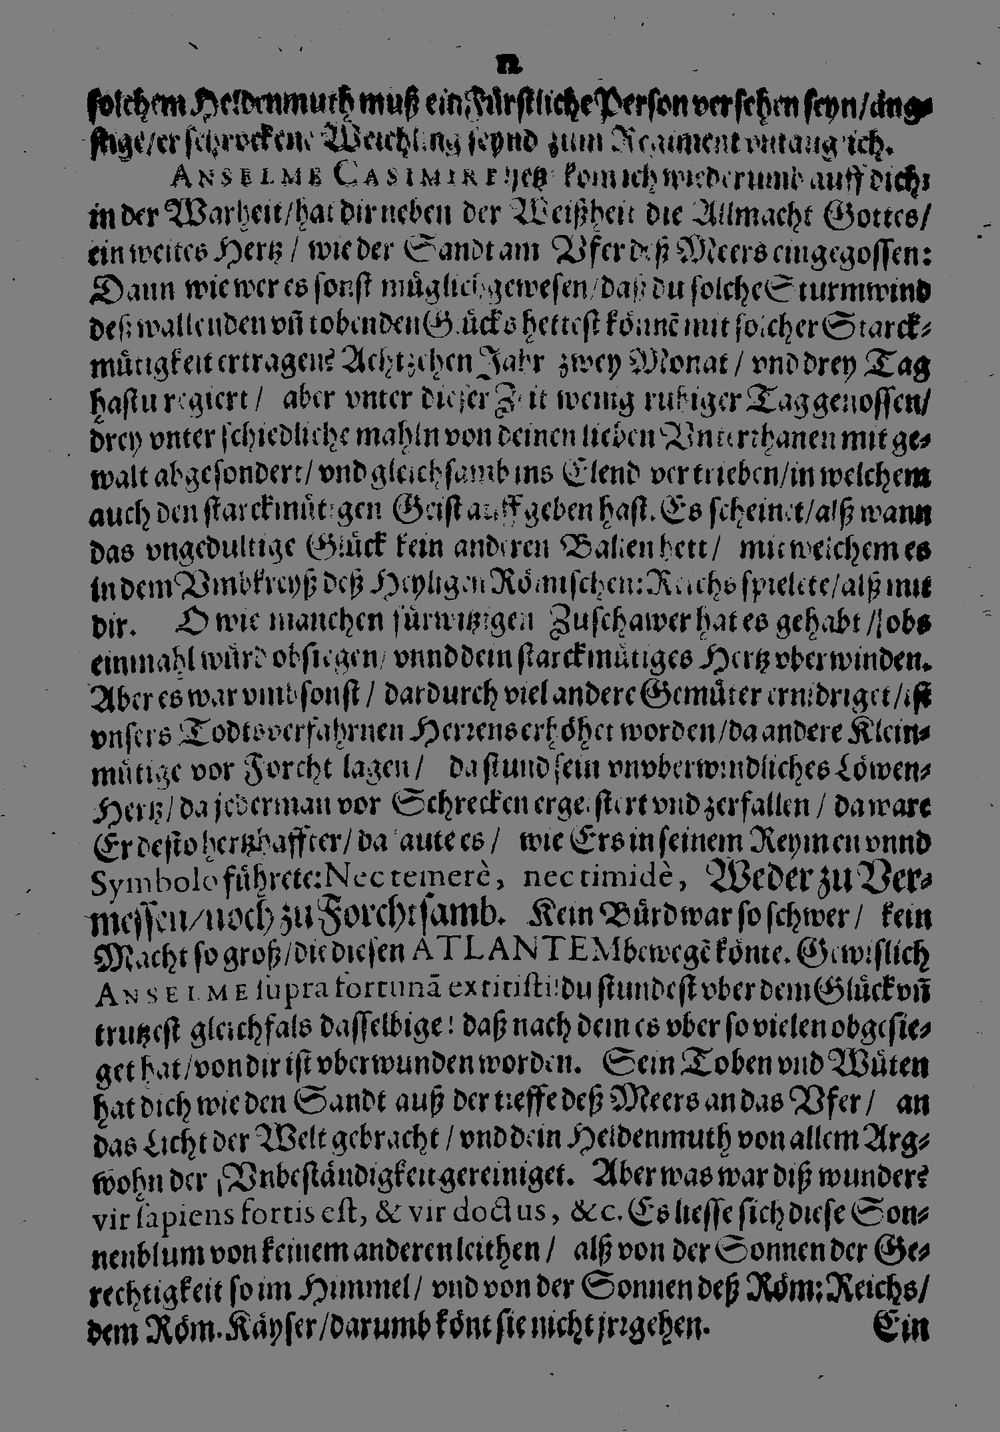 12
solchem Heldenmuth muß ein Fürstliche Person versehen seyn/äng⸗
stige/erschrockene Weichling seynd zum Regiment vntauglich.
ANSELME CASIMIRE jetz kom ich wiederumb auff dich:
in der Warheit/hat dir neben der Weißheit die Allmacht Gottes/
ein weites Hertz / wie der Sandt am Vfer deß Meers eingegossen:
Dann wie wer es sonst müglich gewesen/daß du solche Sturmwind
deß wallenden vñ tobenden Glücks hettest könnē mit solcher Starck⸗
mütigkeit ertragen? Achtzehen Jahr zwey Monat / vnd drey Tag
hastu regiert / aber vnter dieser Zeit wenig ruhiger Tag genossen/
drey vnterschiedliche mahln von deinen lieben Vnterthanen mit ge⸗
walt abgesondert/ vnd gleichsamb ins Elend vertrieben/in welchem
auch den starckmütigen Geist auffgeben hast. Es scheinet/alß wann
das vngedultige Glück kein anderen Ballen hett / mit welchem es
in dem Vmbkreyß deß Heyligen Römischen: Reichs spielete/alß mit
dir. O wie manchen fürwitzigen Zuschawer hat es gehabt / obs
einmahl würd obsiegen/ vnnd dein starckmütiges Hertz vberwinden.
Aber es war vmbsonst / dardurch viel andere Gemüter ernidriget/ist
vnsers Todtsverfahrnen Herrens erhöhet worden/da andere Klein⸗
mütige vor Forcht lagen / da stund sein vnvberwindliches Löwen⸗
Hertz/da jederman vor Schrecken ergeistert vnd zerfallen / da ware
Er desto hertzhaffter/ da lautees / wie Ers in seinem Reymen vnnd
Symbolo führete: Nec temerè, nec timidè, Weder zu Ver⸗
messen/noch zu Forchtsamb. Kein Bürd war so schwer / kein
Macht so groß/die diesen ATLANTEM bewegē könte. Gewislich
ANSELME supra fortunā extitisti! du stundest vber dem Glück vñ
trutzest gleichfals dasselbige! daß nach dem es vber so vielen obgesie⸗
get hat/von dir ist vberwunden worden. Sein Toben vnd Wüten
hat dich wie den Sandt auß der tieffe deß Meers an das Vfer / an
das Licht der Welt gebracht / vnd dein Heldenmuth von allem Arg⸗
wohn der Vnbeständigkeit gereiniget. Aber was war diß wunder?
vir sapiens fortis est, & vir doctus, &c. Es liesse sich diese Son⸗
nenblum von keinem anderen leithen / alß von der Sonnen der Ge⸗
rechtigkeit so im Himmel / vnd von der Sonnen deß Röm: Reichs/
dem Röm. Käyser/darumb könt sie nicht jrrgehen.
Ein